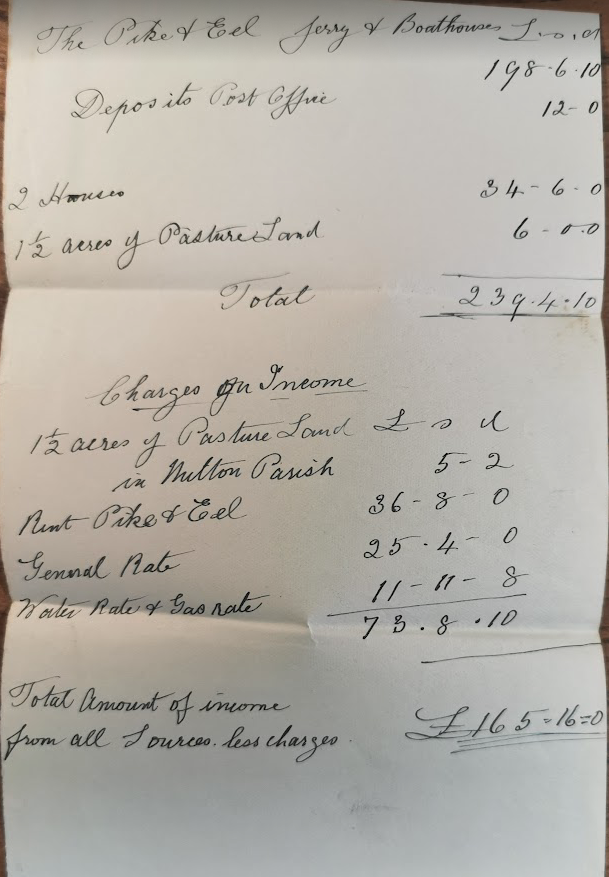 The Pike & Eel Jerry & Boathouses £. s. d
198-6.10
Deposits Post Office 12-0
2 Houses 34-6-0
1½ acres of Pasture Land 6-0.0
Total 239.4.10
Charges on Income
1½ acres of Pasture Land £ s d
in Milton Parish 5-2
Rent Pike & Eel 36-8-0
General Rate 25.4-0
Water Rate & Gas rate 11-11-8
73.8.10
Total Amount of income
from all Sources. less charges. £165=16=0